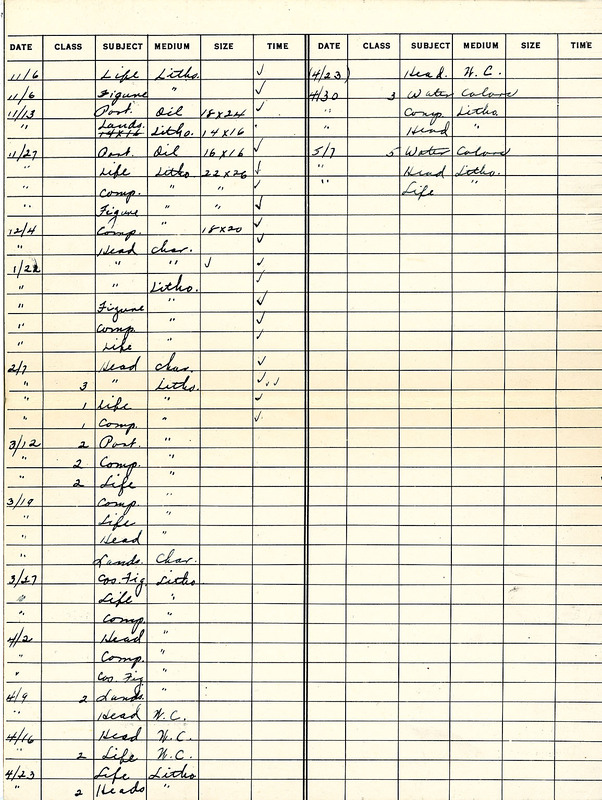 DATE CLASS SUBJECT MEDIUM SIZE TIME
11/6 Life Litho. ✓
11/6 Figure " ✓
11/13 Port. Oil 18x24 ✓
" Lands. Litho. 14x16 "
11/27 Port. Oil 16x16 ✓
" Life Litho 22x26 ✓
" Comp. " " ✓
" Figure " " ✓
12/4 Comp. " 18x20 ✓
" Head Char. ✓
1/22 " " ✓ ✓
" " Litho. ✓
" Figure " ✓
" Comp. " ✓
" Life " ✓
2/7 Head Char. ✓
" 3 " Litho. ✓✓✓
" 1 Life " ✓
" 1 Comp. " ✓
3/12 2 Port. "
" 2 Comp. "
" 2 Life "
3/19 Comp. "
" Life "
" Head "
" Lands. Char.
3/27 Cos. Fig. Litho.
" Life "
" Comp. "
4/2 Head "
" Comp. "
" Cos. Fig. "
4/9 2 Lands. "
" Head W.C.
4/16 Head W.C.
" 2 Life W.C.
4/23 Life Litho
" 2 Heads "
DATE CLASS SUBJECT MEDIUM SIZE TIME
(4/23) Head. W.C.
4/30 3 Water Colors
" Comp. Litho.
" Head "
5/7 5 Water Colors
" Head Litho.
" Life "